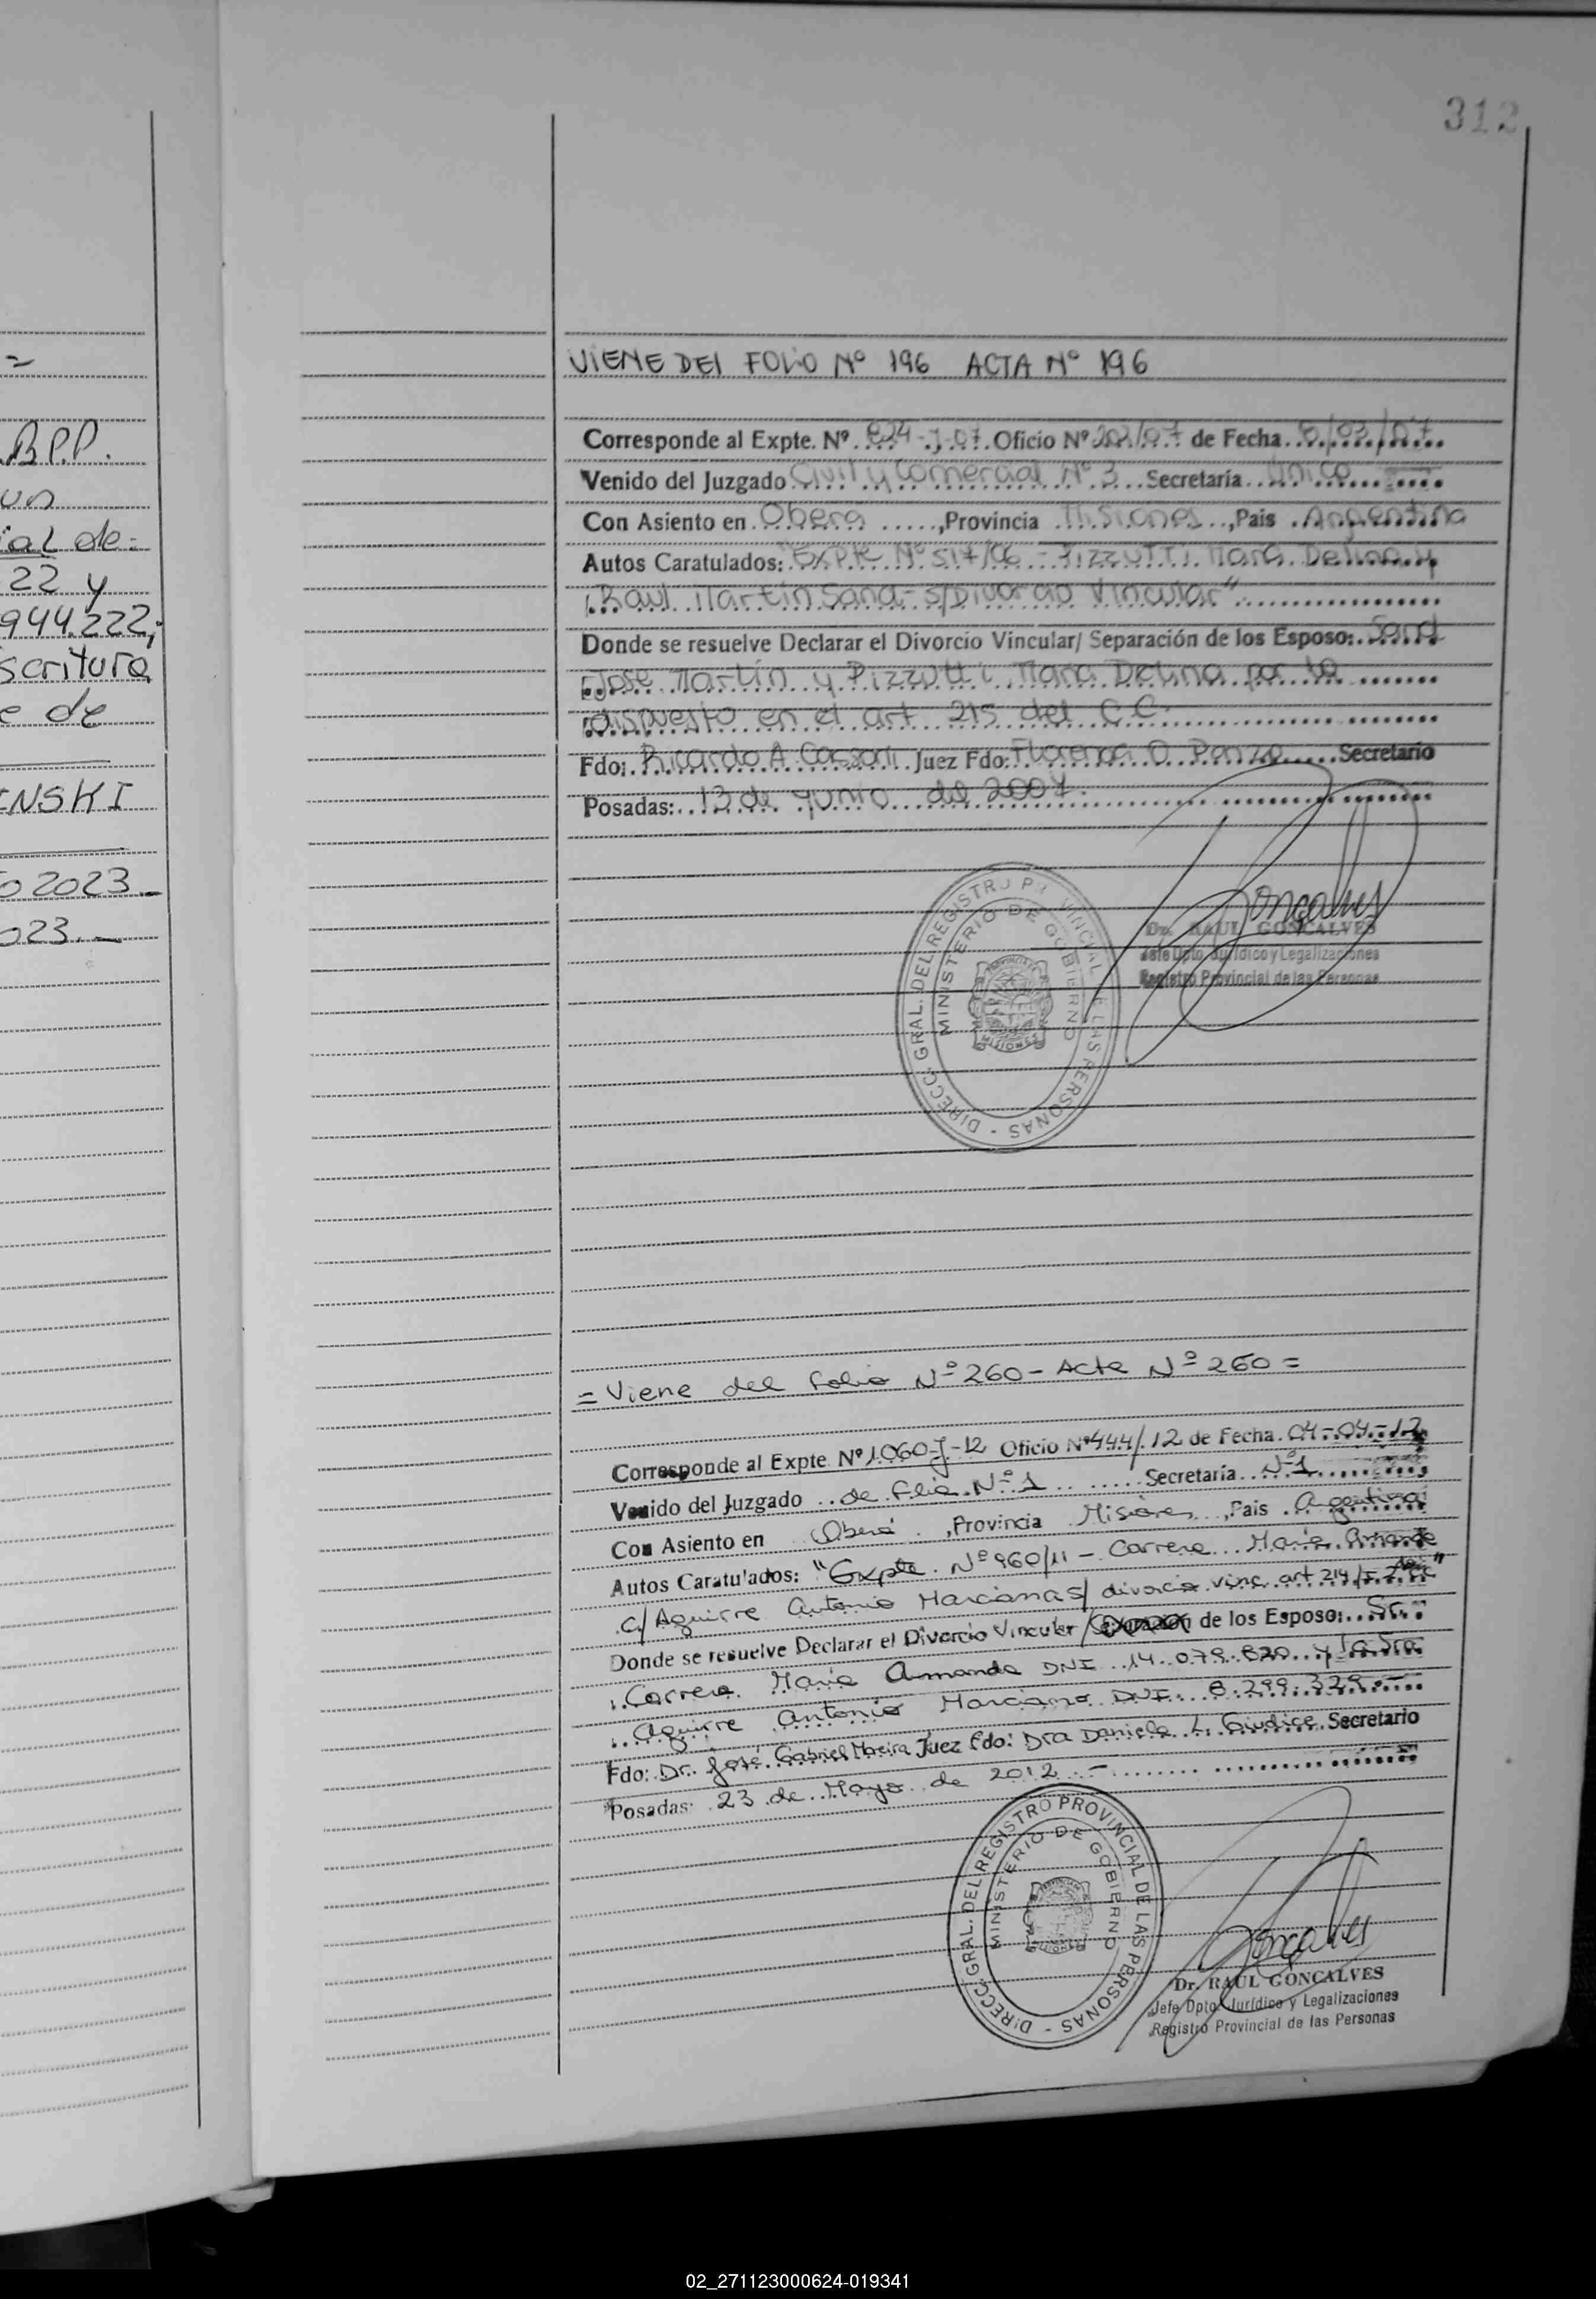 312
=
B.P.P.
un
ial de=
22 y
944.222,
scritura
e de
INSKI
o 2023._
023._
VIENE DEL FOLIO Nº 196 ACTA Nº 196
Corresponde al Expte. Nº 824-J-07 Oficio Nº 202/07 de Fecha 5/03/07
Venido del Juzgado Civil y Comercial Nº 3 Secretaría Unica
Con Asiento en Obera ,Provincia Misiones ,Pais Argentina
Autos Caratulados: "Expte Nº 517/06 - Pizzutti Mara Delina y
Raul Martín Sand - s/Divorcio Vincular"
Donde se resuelve Declarar el Divorcio Vincular/ Separación de los Esposo: Sand
Jose Martín y Pizzutti Mara Delina por lo
dispuesto en el art 215 del C.C.
Fdo: Ricardo A. Cassoni Juez Fdo: O. Panza Secretario
Posadas: 13 de Junio del 2007.
DIRECC. GRAL. DEL REGISTRO PROVINCIAL DE LAS PERSONAS -
MINISTERIO DE GOBIERNO
MISIONES
Gonçalves
Dr. RAUL GONCALVES
Jefe Dpto Jurídico y Legalizaciones
Registro Provincial de las Personas
= Viene del folio Nº 260 - Acta Nº 260 =
Corresponde al Expte Nº 1060-J-12 Oficio Nº 444/12 de Fecha 04-04-12
Venido del Juzgado de flia Nº 1 Secretaría Nº 1
Con Asiento en Oberá ,Provincia Misiones ,Pais Argentina
Autos Caratulados: "Expte Nº 960/11 - Carrera Maria Amanda
c/ Aguirre Antonio Marciano s/ divorcio vinc. art 214
Donde se resuelve Declarar el Divorcio Vincular / de los Esposo: Sr.
Carrera Maria Amanda DNI 14.079.820 y la Sra.
Aguirre Antonio Marciano DNI 8.299.329.-
Fdo: Dr. José Gabriel Moreira Juez Fdo: Dra Daniela L. Giudice Secretario
Posadas: 23 de Mayo de 2012.-
DIRECC. GRAL. DEL REGISTRO PROVINCIAL DE LAS PERSONAS -
MINISTERIO DE GOBIERNO
Gonçalves
Dr. RAUL GONCALVES
Jefe Dpto. Jurídico y Legalizaciones
Registro Provincial de las Personas
02_271123000624-019341